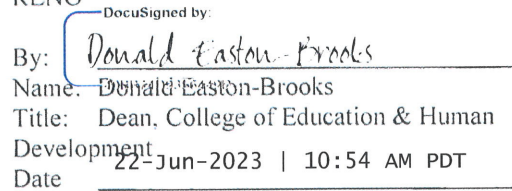 RENO
DocuSigned by:
By: Donald Easton-Brooks
Name: Donald Easton-Brooks
Title: Dean, College of Education & Human
Development
22-Jun-2023 | 10:54 AM PDT
Date